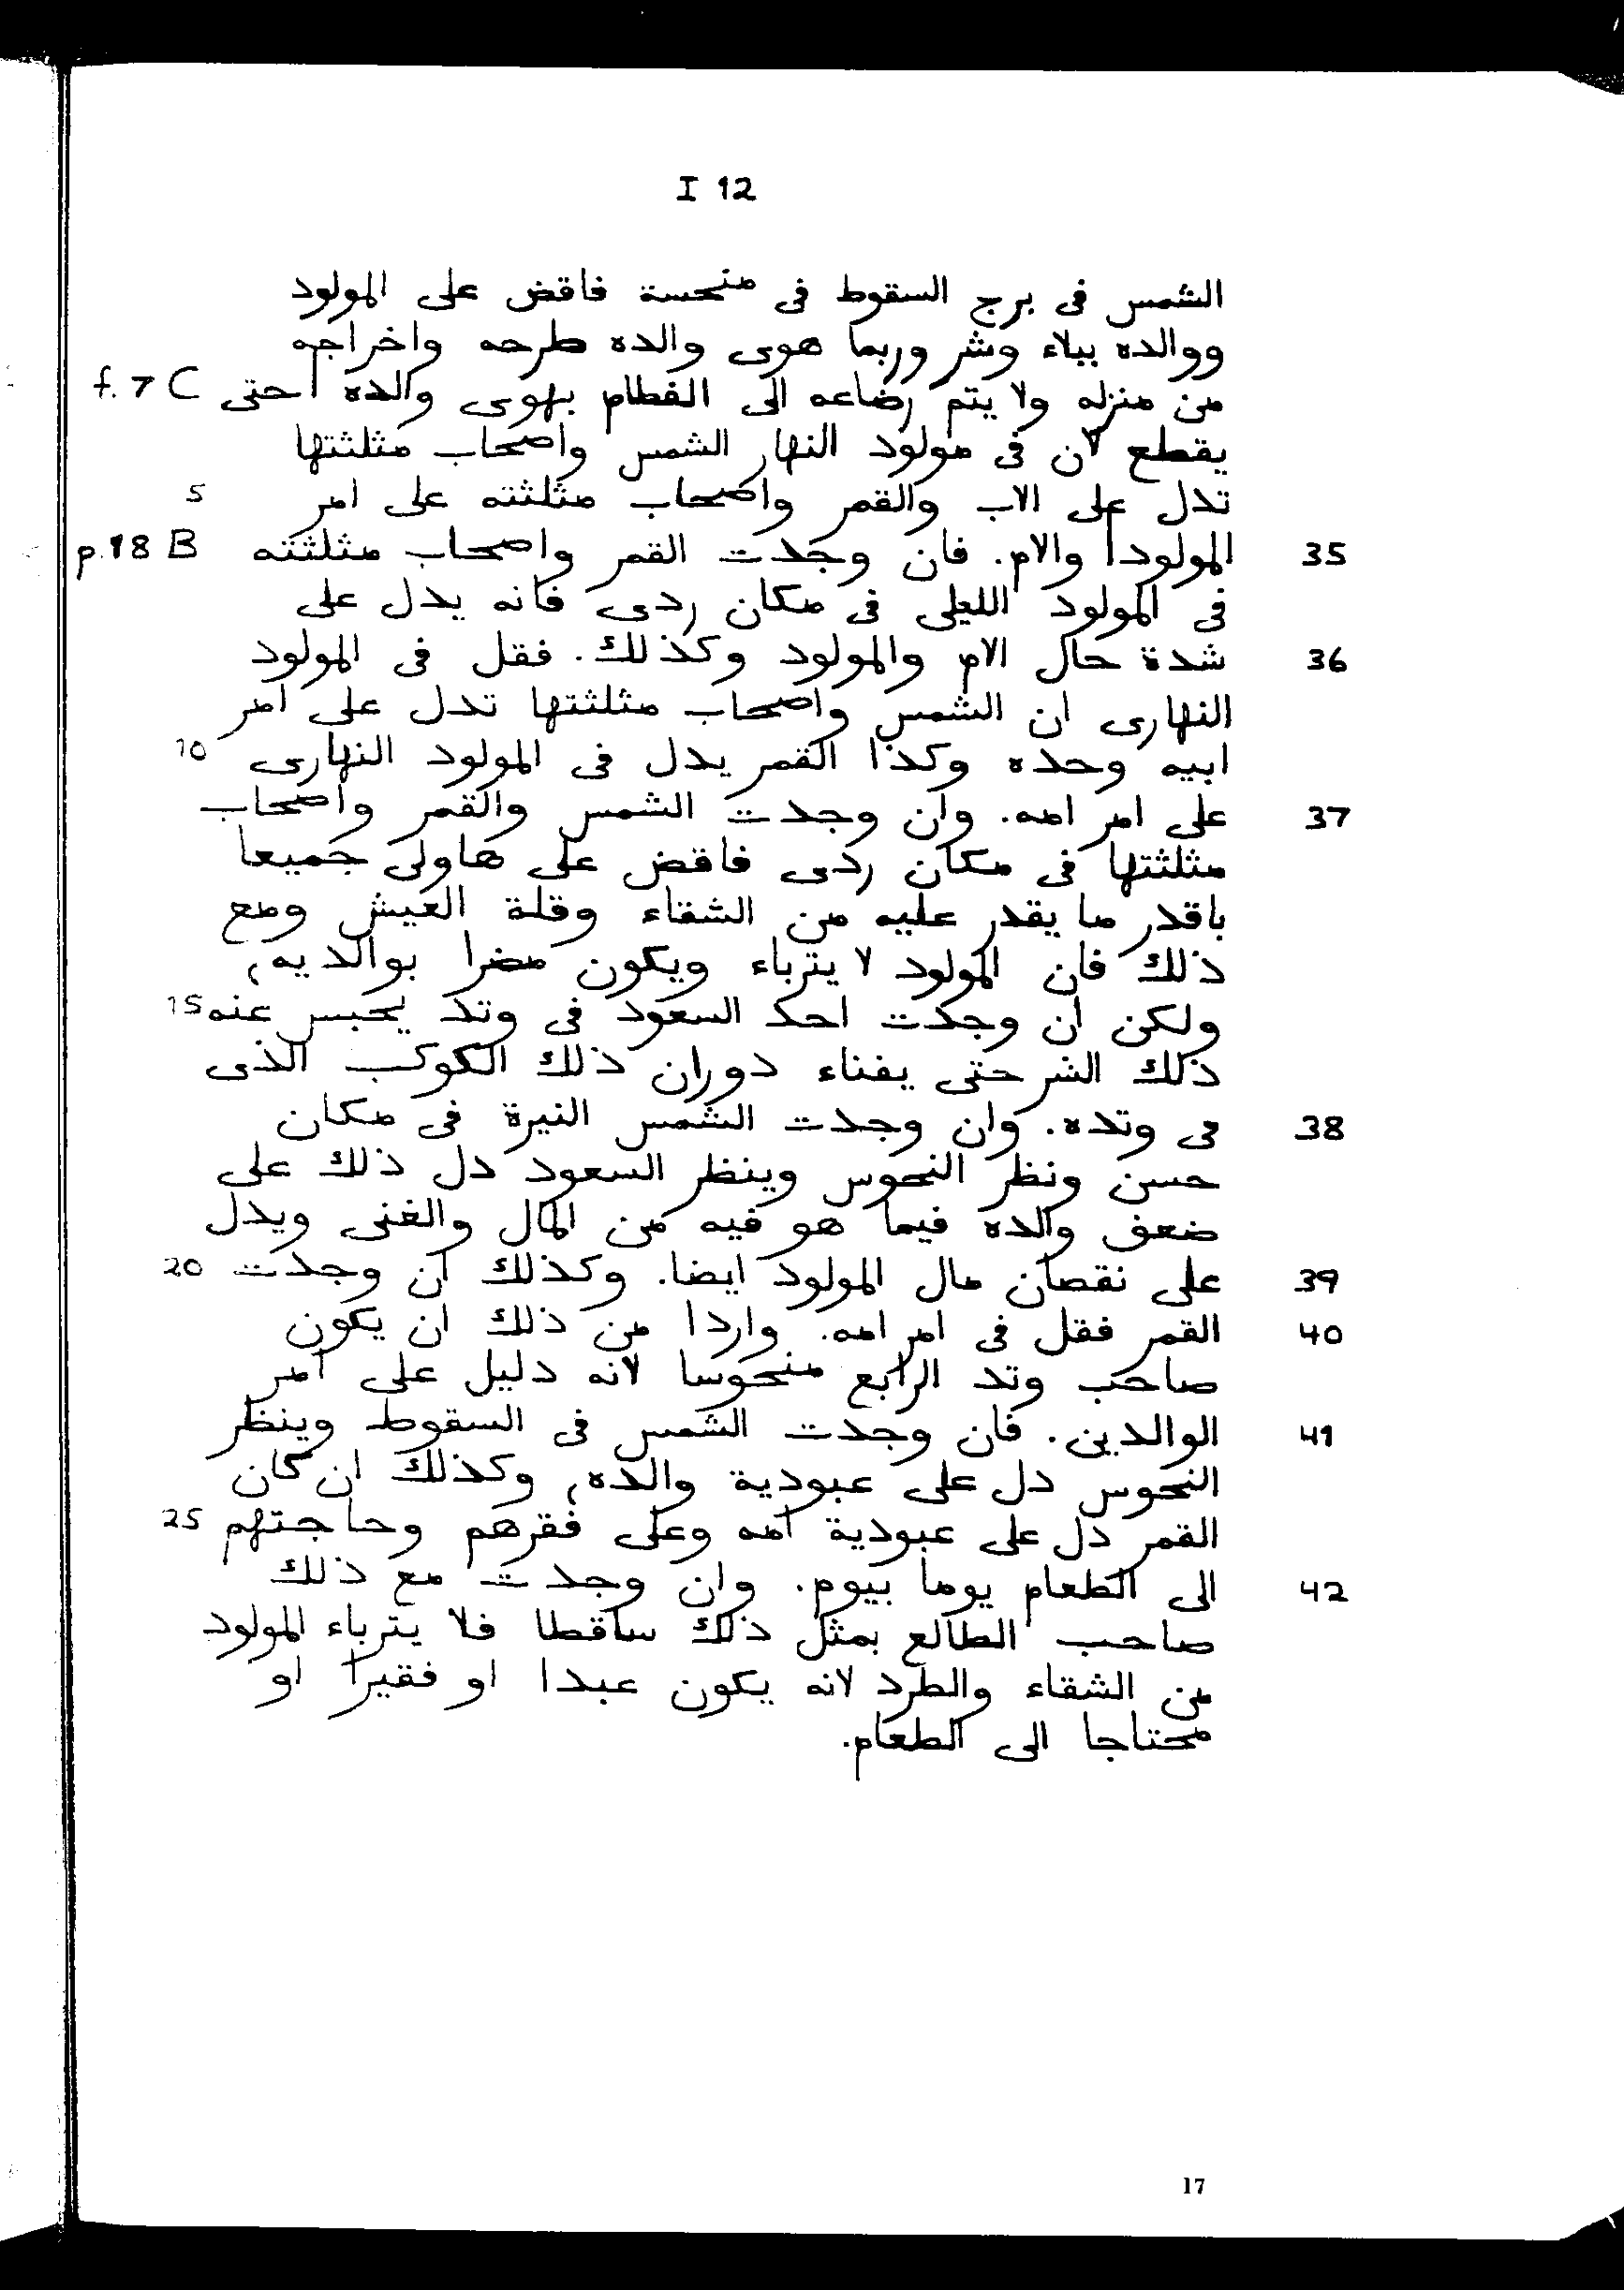 I 12
الشمس فى برج السقوط فى منحسة فاقض على المولود
ووالده ببلاء وشر وربما هوى والده طرحه واخراجه
من منزله ولا يتم رضاعه الى الفطام بهوى والده | حتى f. 7 C
يقطع لان فى مولود النهار الشمس واصحاب مثلثتها
تدل على الاب والقمر واصحاب مثلثته على امر 5
35 المولود | والام. فان وجدت القمر واصحاب مثلثته p. 18 B
فى المولود الليلى فى مكان ردى فانه يدل على
36 شدة حال الام والمولود وكذلك. فقل فى المولود
النهارى ان الشمس واصحاب مثلثتها تدل على امر
ابيه وحده وكذا القمر يدل فى المولود النهارى 10
37 على امر امه. وان وجدت الشمس والقمر واصحاب
مثلثتها فى مكان ردى فاقض على هاولى جميعا
باقدر ما يقدر عليه من الشقاء وقلة العيش ومع
ذلك فان المولود لا يترباء ويكون مضرا بوالديه،
ولكن ان وجدت احد السعود فى وتد يحبس عنه 15
ذلك الشر حتى يفناء دوران ذلك الكوكب الذى
38 فى وتده. وان وجدت الشمس النيرة فى مكان
حسن ونظر النحوس وينظر السعود دل ذلك على
ضعف والده فيما هو فيه من المال والغنى ويدل
39 على نقصان مال المولود ايضا. وكذلك ان وجدت 20
40 القمر فقل فى امر امه. واردا من ذلك ان يكون
صاحب وتد الرابع منحوسا لانه دليل على امر
41 الوالدين. فان وجدت الشمس فى السقوط وينظر
النحوس دل على عبودية والده، وكذلك ان كان
القمر دل على عبودية امه وعلى فقرهم وحاجتهم 25
42 الى الطعام يوما بيوم. وان وجدت مع ذلك
صاحب الطالع بمثل ذلك ساقطا فلا يترباء المولود
من الشقاء والطرد لانه يكون عبدا او فقيرا او
محتاجا الى الطعام.
17